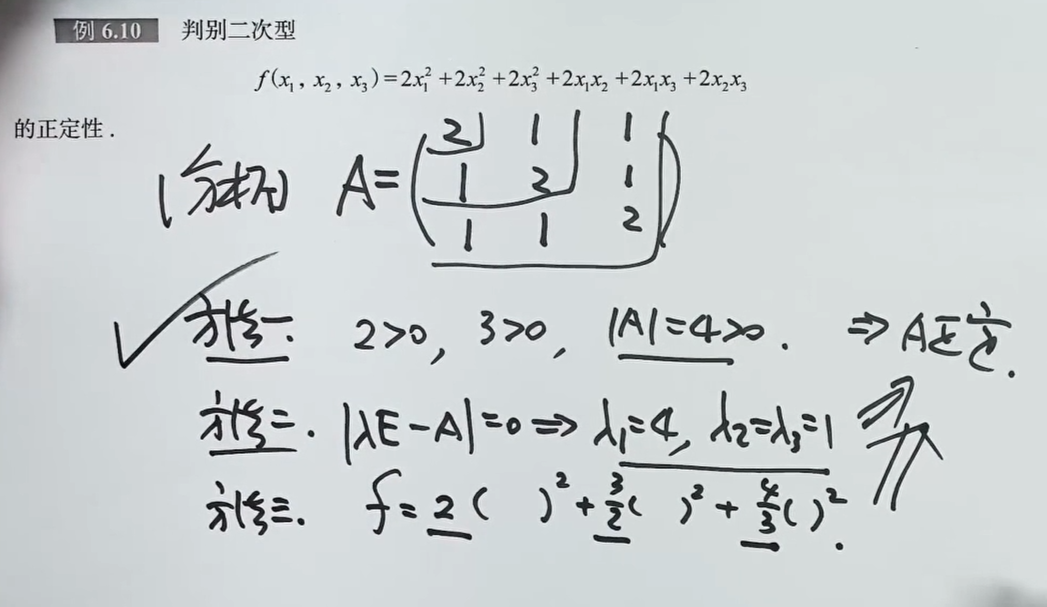 例 6.10 判别二次型
f(x₁, x₂, x₃)=2x₁²+2x₂²+2x₃²+2x₁x₂+2x₁x₃+2x₂x₃
的正定性.
[分析] A=(2 1 1
1 2 1
1 1 2)
方法一. 2>0, 3>0, |A|=4>0. ⇒ A正定.
方法二. |λE-A|=0⇒ λ₁=4, λ₂=λ₃=1
方法三. f=2( )²+3/2( )²+4/3( )².